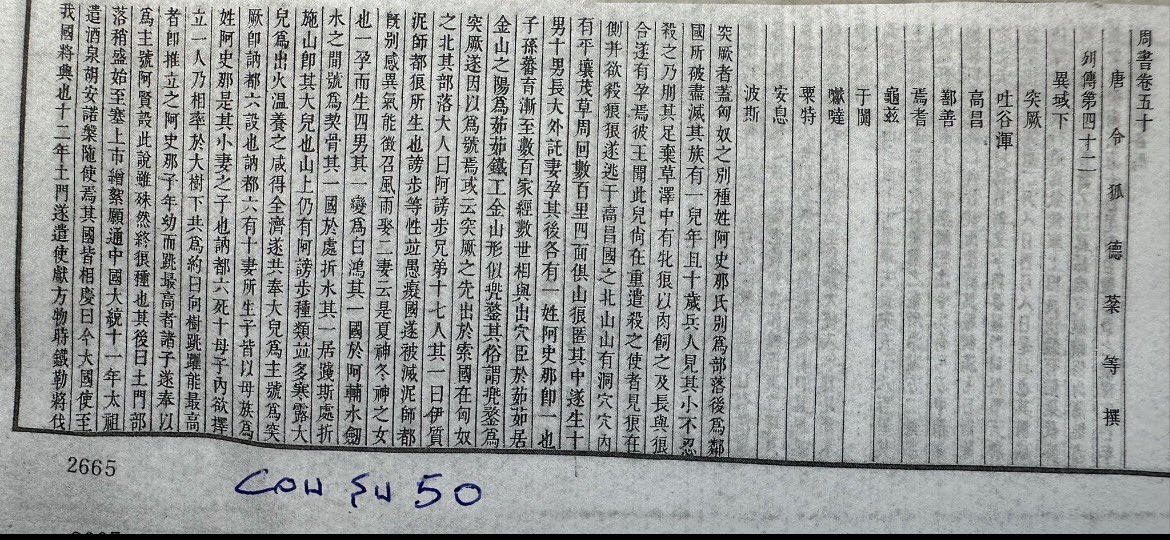 周書卷五十
唐令狐德棻等撰
列傳第四十二
異域下
突厥
吐谷渾
高昌
鄯善
焉耆
龜茲
于闐
囐噠
粟特
安息
波斯
突厥者蓋匈奴之別種姓阿史那氏別爲部落後爲鄰
國所破盡滅其族有一兒年且十歲兵人見其小不忍
殺之乃刖其足棄草澤中有牝狼以肉飼之及長與狼
合遂有孕焉彼王聞此兒尙在重遣殺之使者見狼在
側幷欲殺狼狼遂逃于高昌國之北山山有洞穴穴內
有平壤茂草周回數百里四面俱山狼匿其中遂生十
男十男長大外託妻孕其後各有一姓阿史那卽一也
子孫蕃育漸至數百家經數世相與出穴臣於茹茹居
金山之陽爲茹茹鐵工金山形似兜鍪其俗謂兜鍪爲
突厥遂因以爲號焉或云突厥之先出於索國在匈奴
之北其部落大人曰阿謗步兄弟十七人其一曰伊質
泥師都狼所生也謗步等性竝愚癡國遂被滅泥師都
旣別感異氣能徵召風雨娶二妻云是夏神冬神之女
也一孕而生四男其一變爲白鴻其一國於阿輔水劒
水之間號爲契骨其一國於處折水其一居踐斯處折
施山卽其大兒也山上仍有阿謗步種類竝多寒露大
兒爲出火溫養之咸得全濟遂共奉大兒爲主號爲突
厥卽訥都六設也訥都六有十妻所生子皆以母族爲
姓阿史那是其小妻之子也訥都六死十母子內欲擇
立一人乃相率於大樹下共爲約曰向樹跳躍能最高
者卽推立之阿史那子年幼而跳最高者諸子遂奉以
爲主號阿賢設此說雖殊然終狼種也其後曰土門部
落稍盛始至塞上市繒絮願通中國大統十一年太祖
遣酒泉胡安諾槃陁使焉其國皆相慶曰今大國使至
我國將興也十二年土門遂遣使獻方物時鐵勒將伐
2665
Cou Şu 50